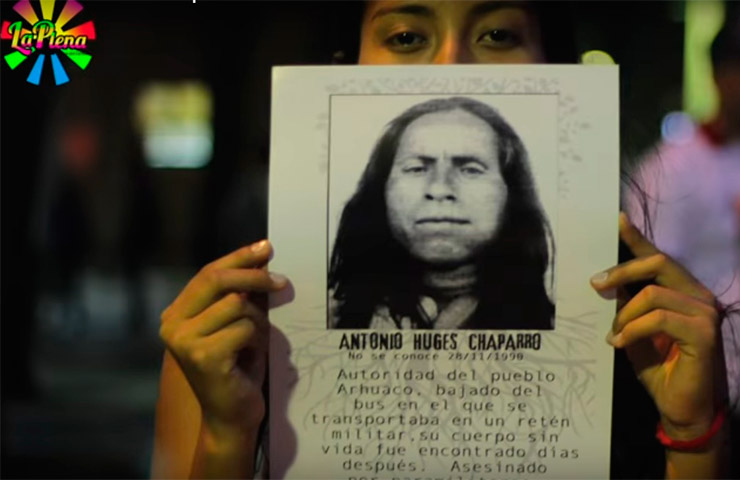 La Plena
ANTONIO HUGES CHAPARRO
No se conoce 28/11/1990
Autoridad del pueblo
Arhuaco, bajado del
bus en el que se
transportaba en un retén
militar,su cuerpo sin
vida fue encontrado días
después. Asesinado
por